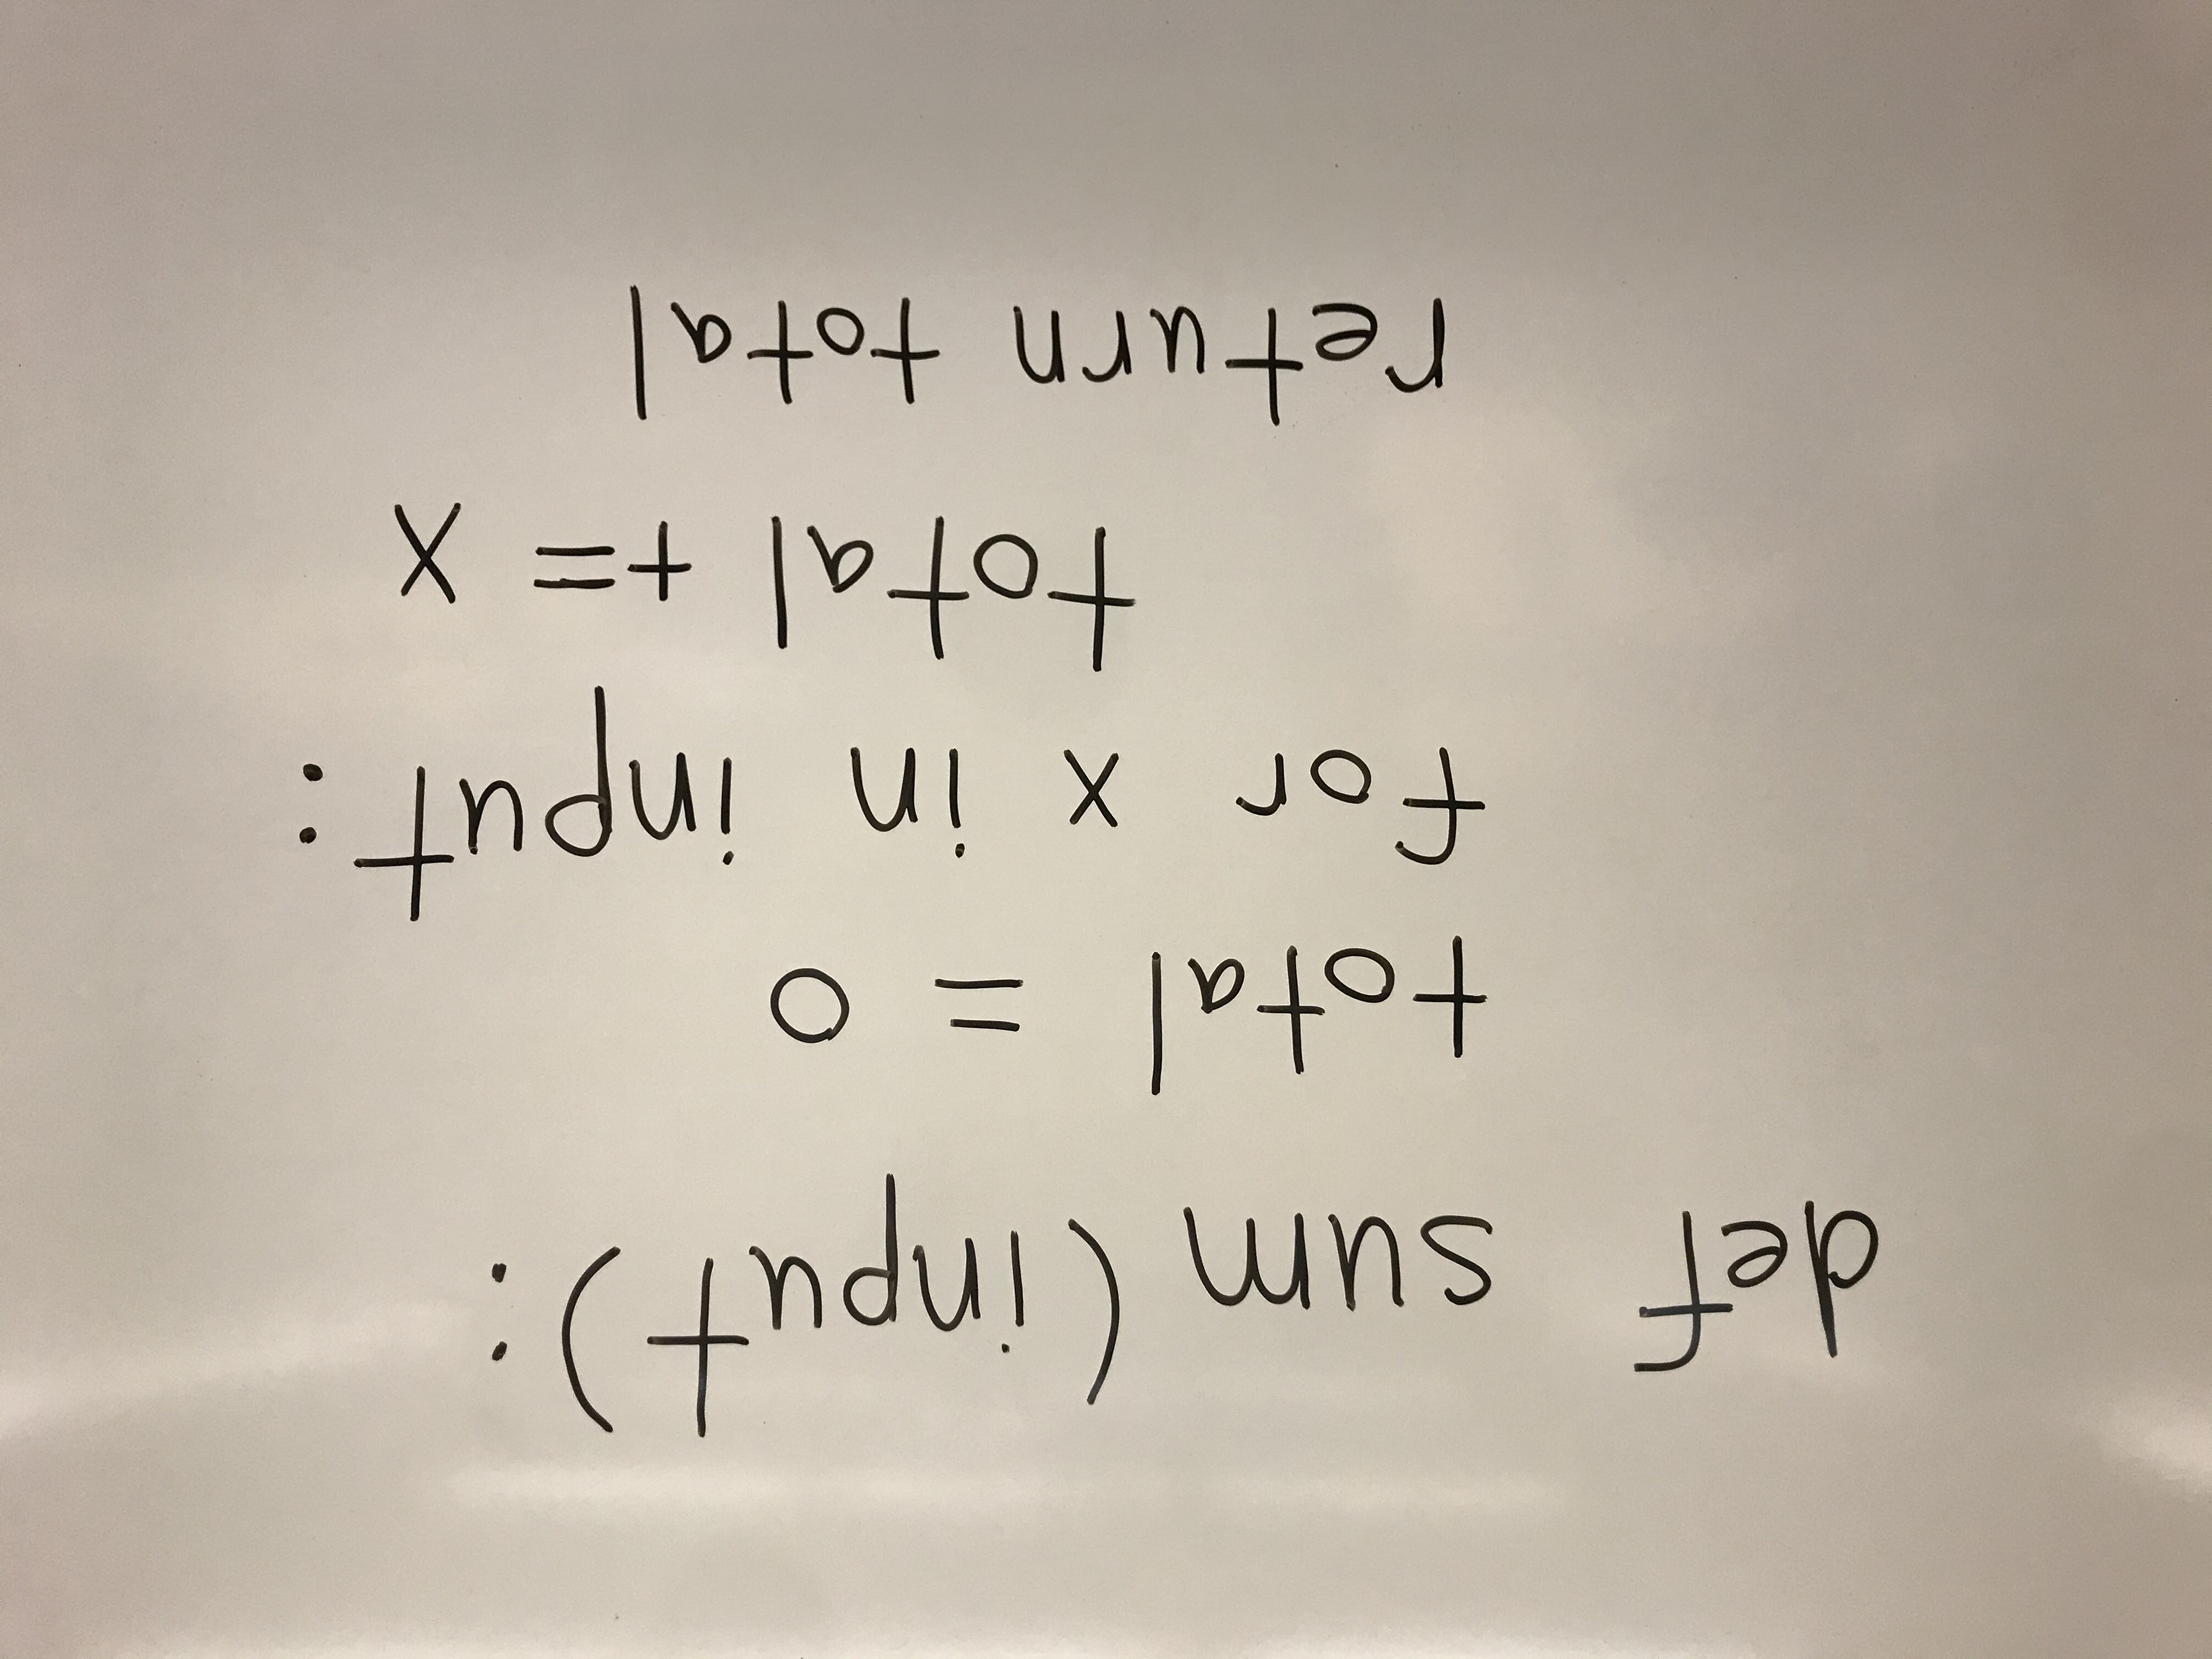 def sum (input):
total = 0
for x in input:
total += x
return total